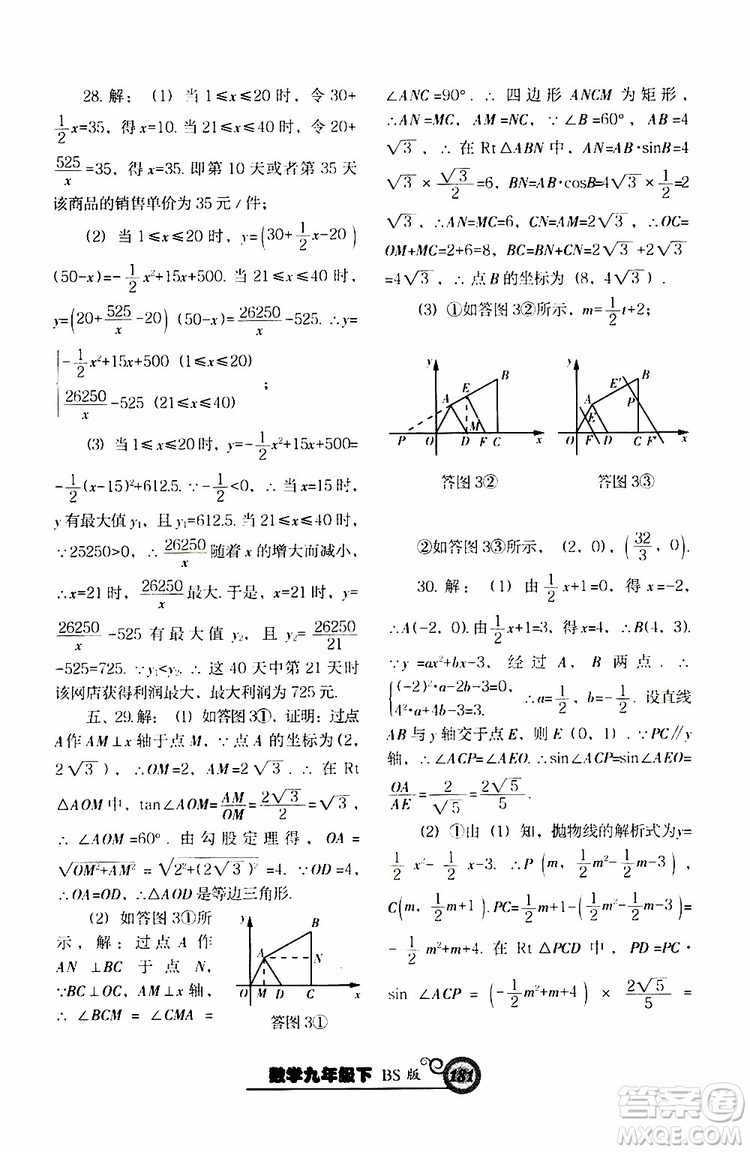 28. 解：（1）当 1≤x≤20 时，令 30+
1/2 x=35，得 x=10. 当 21≤x≤40 时，令 20+
525/x=35，得 x=35. 即第 10 天或者第 35 天
该商品的销售单价为 35 元 / 件；
（2）当 1≤x≤20 时，y=(30+1/2 x-20)
(50-x)=-1/2 x²+15x+500. 当 21≤x≤40 时，
y=(20+525/x-20) (50-x)=26250/x-525. ∴y=
{-1/2 x²+15x+500 (1≤x≤20)
26250/x-525 (21≤x≤40) ；
（3）当 1≤x≤20 时，y=-1/2 x²+15x+500=
-1/2(x-15)²+612.5. ∵-1/2<0，∴当 x=15 时，
y 有最大值 y₁=612.5. 当 21≤x≤40 时，
∵25250>0，∴26250/x 随着 x 的增大而减小，
∴x=21 时，26250/x 最大. 于是，x=21 时，y=
26250/x-525 有最大值 y₂，y₂=26250/21
-525=725. ∵y₁<y₂ ∴这 40 天中第 21 天时
该网店获得利润最大，最大利润为 725 元.
五、29.解：（1）如答图 3①，证明：过点
A作 AM⊥x 轴于点 M，∵点 A 的坐标为 (2，
2√3)，∴OM=2，AM=2√3 ∴在 Rt
△AOM 中，tan∠AOM=AM/OM=2√3/2=√3，
∴∠AOM=60°. 由勾股定理得，OA=
√OM²+AM²=√2²+(2√3)²=4. ∵OD=4，
∴OA=OD，∴△AOD 是等边三角形.
（2）如答图 3①所
示，解：过点 A 作
AN⊥BC 于点 N，
∵BC⊥OC，AM⊥x 轴，
∴∠BCM=∠CMA=
y B A N O M D C x
答图 3①
∠ANC=90°. ∴四边形 ANCM 为矩形，
∴AN=MC，AM=NC，∵∠B=60°，AB=4
√3，∴在 Rt△ABN 中，AN=AB·sinB=4
√3×√3/2=6，BN=AB·cosB=4√3×1/2=2
√3，∴AN=MC=6，CN=AM=2√3. ∴OC=
OM+MC=2+6=8，BC=BN+CN=2√3+2√3
=4√3，∴点 B 的坐标为 (8，4√3).
（3）①如答图 3②所示，m=1/2 t+2；
y B E A M P O D F C x
y E' B A P E O F D C F' x
答图 3② 答图 3③
②如答图 3③所示，(2，0)，(32/3，0).
30. 解：（1）由 1/2 x+1=0，得 x=-2，
∴A(-2，0).由 1/2 x+1=3，得 x=4，∴B(4，3).
∵y=ax²+bx-3 经过 A、B 两点，∴
{(-2)²·a-2b-3=0
4²·a+4b-3=3 ∴a=1/2，b=-1/2. 设直线
AB 与 y 轴交于点 E，则 E(0，1). ∵PC∥y
轴，∴∠ACP=∠AEO. ∴sin∠ACP=sin∠AEO=
OA/AE=2/√5=2√5/5；
（2）①由（1）知，抛物线的解析式为y=
1/2 x²-1/2 x-3. ∴P(m，1/2 m²-1/2 m-3)，
C(m，1/2 m+1).PC=1/2 m+1-(1/2 m²-1/2 m-3)=
-1/2 m²+m+4. 在 Rt△PCD 中，PD=PC·
sin∠ACP=(-1/2 m²+m+4)×2√5/5=
数学九年级下 BS 版 181
答案圈
MXQE.COM